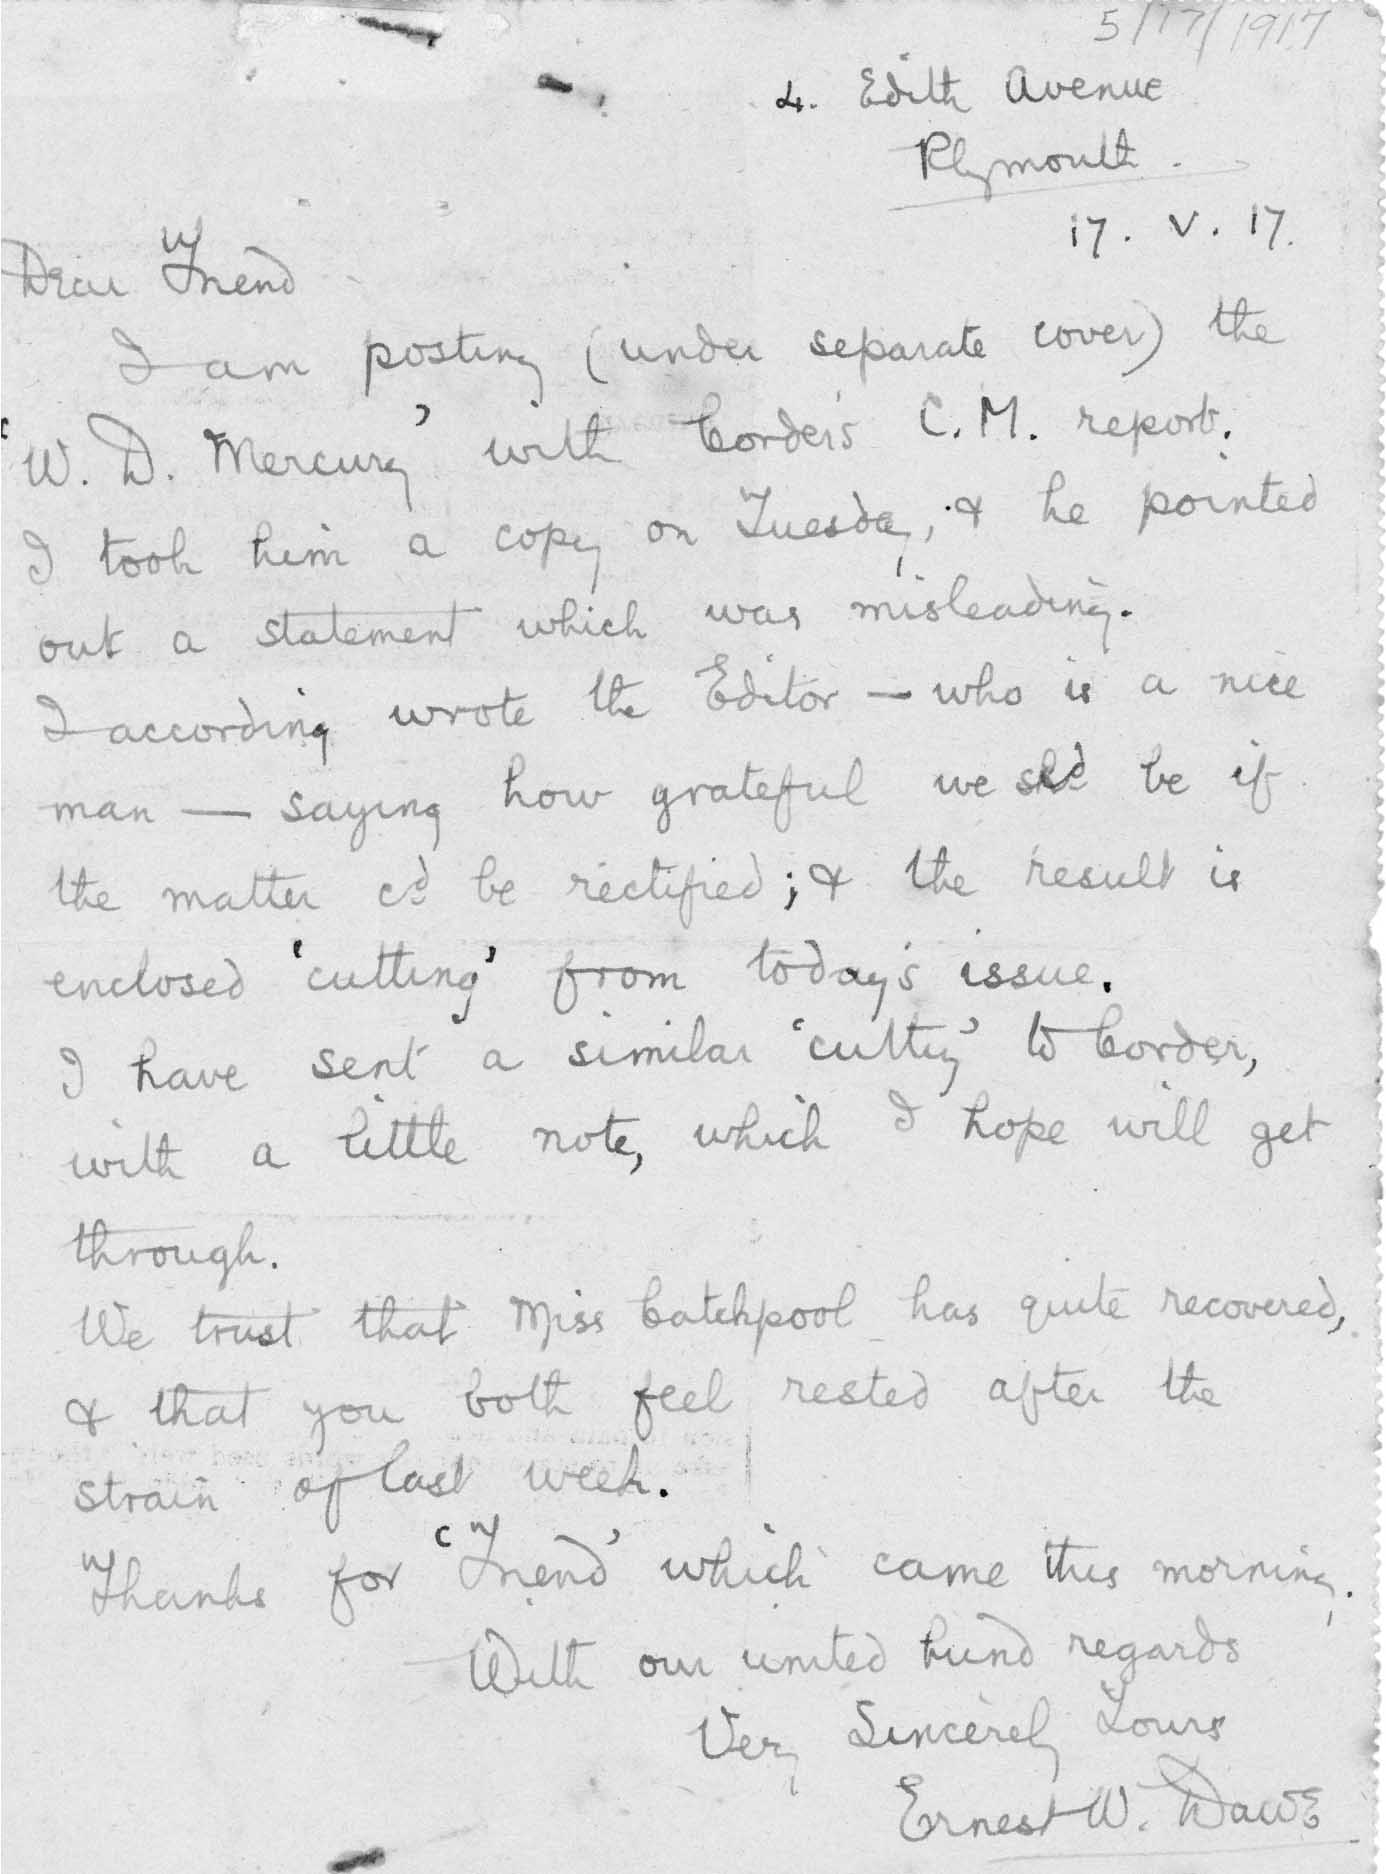 5/17/1917
4. Edith Avenue
Plymouth.
17. V. 17.
Dear Friend
I am posting (under separate cover) the
'W. D. Mercury' with Corder's C.M. report.
I took him a copy on Tuesday, & he pointed
out a statement which was misleading.
I according wrote the Editor — who is a nice
man — saying how grateful we shd be if
the matter cd be rectified; & the result is
enclosed 'cutting' from today's issue.
I have sent a similar 'cutting' to Corder,
with a little note, which I hope will get
through.
We trust that Miss Catchpool has quite recovered,
& that you both feel rested after the
strain of last week.
Thanks for 'Friend' which came this morning.
With our united kind regards
Very Sincerely Yours
Ernest W. Dawe